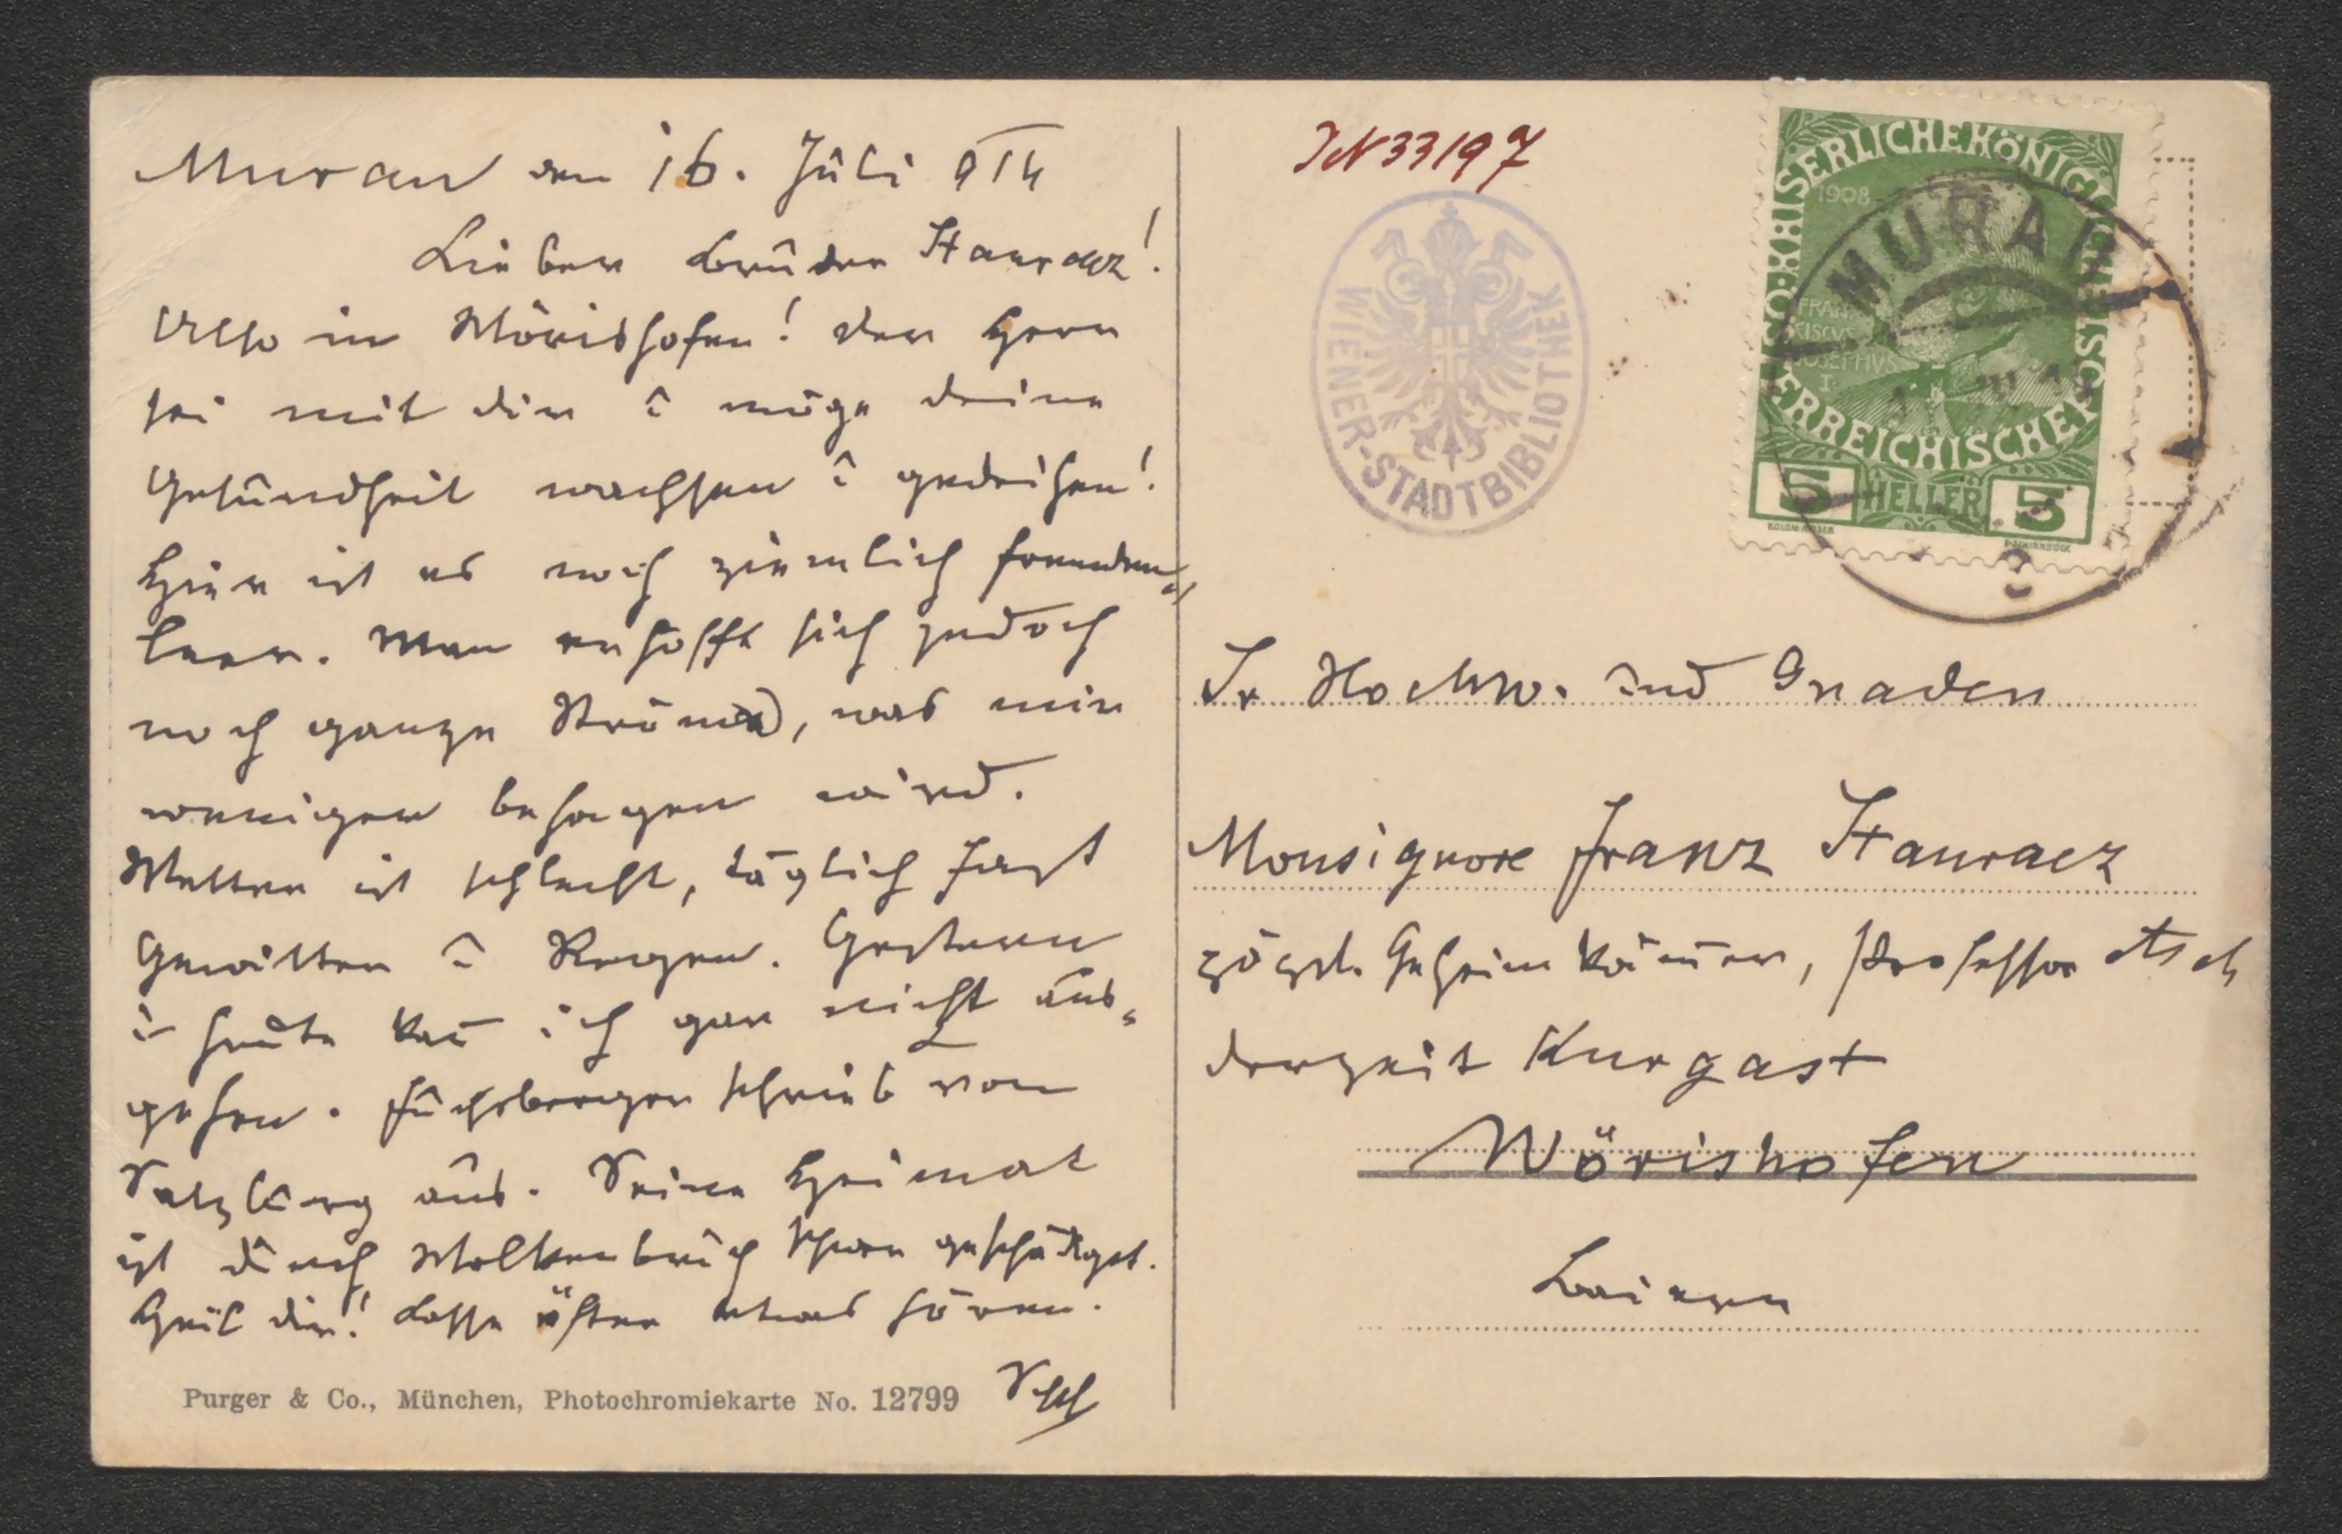 Murau den 16. Juli 914
Lieber Bruder Stauracz!
Also in Wörishofen! Der Herr
sei mit dir u möge deine
Gesundheit wachsen u gedeihen!
Hier ist es noch ziemlich fremden-
leer. Man erhofft sich jedoch
noch ganze Ströme, was mir
weniger behagen wird.
Wetter ist schlecht, täglich fast
Gewitter u Regen. Gestern
u heute kan̅ ich gar nicht aus-
gehen. Fuchsberger schrieb von
Salzburg aus. Seine Heimat
ist durch Wolkenbruch schwer geschädigt.
Heil dir! Lasse öfter etwas hören.
Purger & Co., München, Photochromiekarte No. 12799
IN 33197
WIENER-STADTBIBLIOTHEK
KAISERLICHE KÖNIGLICHE ÖSTERREICHISCHE POST
1908
FRANCISCVS JOSEPHVS I.
5 HELLER 5
MURAU
Sr Hochw. und Gnaden
Monsignore Franz Stauracz
Geheimkäm̅erer, Professor
derzeit Kurgast
Wörishofen
Baiern